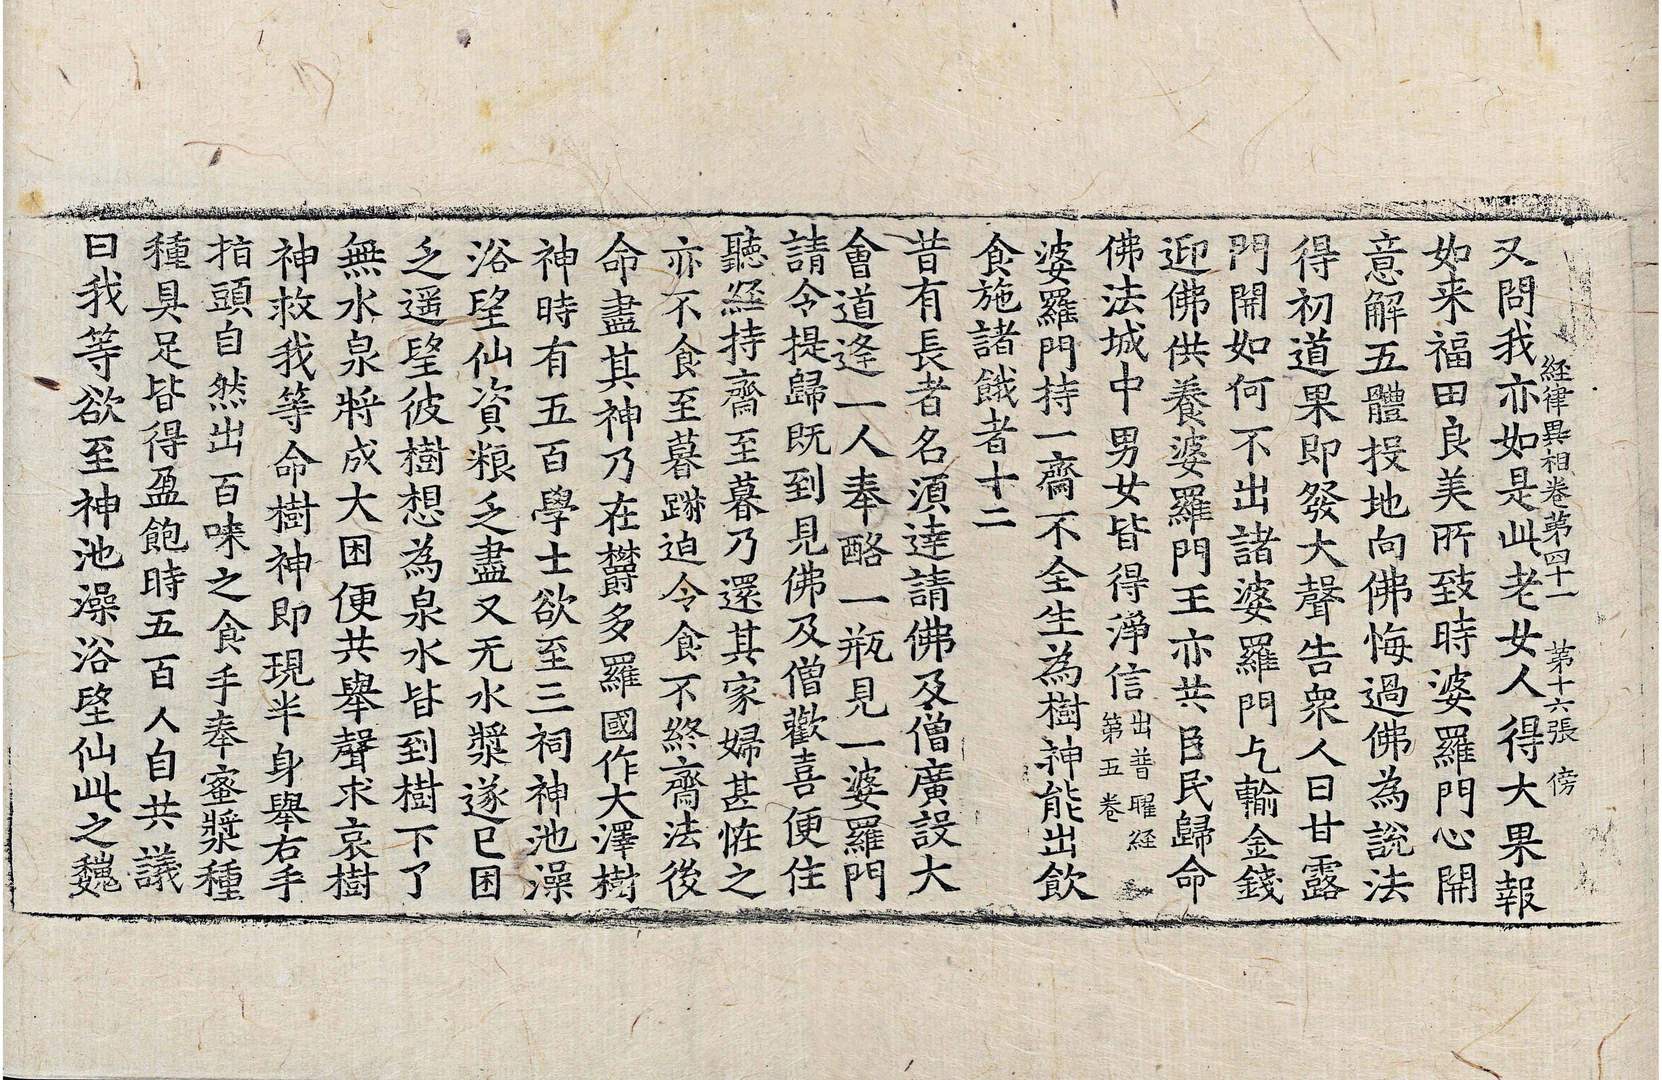 経律異相卷第四十一 第十六張 傍
又問我亦如是此老女人得大果報
如来福田良美所致時婆羅門心開
意解五體投地向佛悔過佛為說法
得初道果即發大聲告衆人曰甘露
門開如何不出諸婆羅門上輸金錢
迎佛供養婆羅門王亦共臣民歸命
佛法城中男女皆得淨信出普曜経第五卷
婆羅門持一齋不全生為樹神能出飲
食施諸餓者十二
昔有長者名須達請佛及僧廣設大
會道逢一人奉酪一瓶見一婆羅門
請令提歸既到見佛及僧歡喜便住
聽経持齋至暮乃還其家婦甚恠之
亦不食至暮迫令食不終齋法後
命盡其神乃在欝多羅國作大澤樹
神時有五百學士欲至三祠神池澡
浴望仙資粮乏盡又无水漿遂已困
乏遥望彼樹想為泉水皆到樹下了
無水泉將成大困便共舉聲求哀樹
神救我等命樹神即現半身舉右手
指頭自然出百味之食手奉蜜漿種
種具足皆得盈飽時五百人自共議
曰我等欲至神池澡浴望仙此之魏